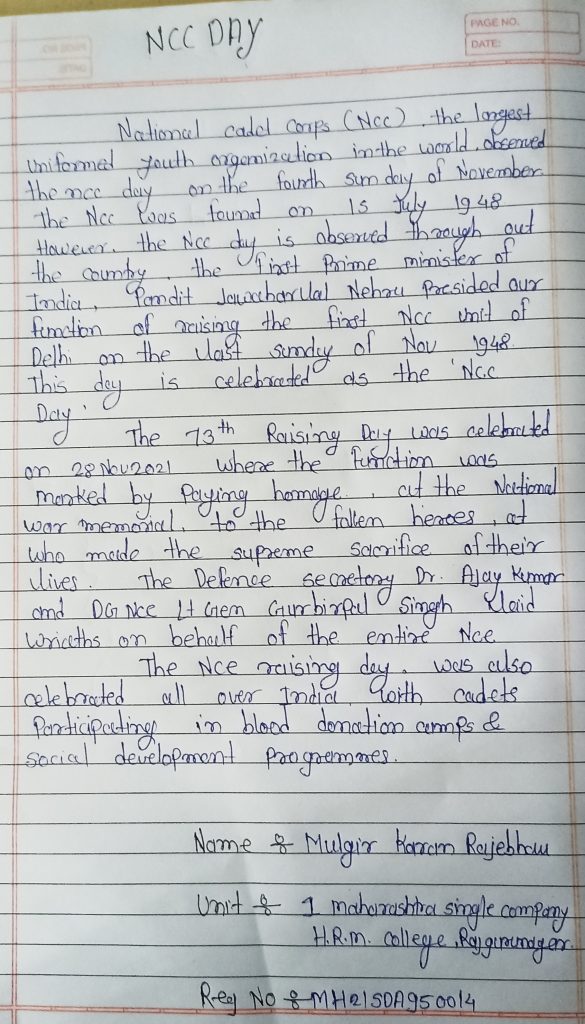 NCC DAY
PAGE NO.
DATE:
National cadel corps (Ncc), the longest
Uniformed youth orgomization in the world, observed
the ncc day on the fourth sunday of November
The Ncc Was found on 15 July 1948
However, the Ncc day is observed through out
the country, the First Prime minister of
India, Pandit Jawaharlal Nehru Presided our
function of raising the first Ncc Unit of
Delhi on the last sunday of Nov 1948
This day is celebrated as the 'Ncc
Day'
The 73th Raising Day was celebrated
on 28 Nov 2021 where the Function was
marked by Paying homage, at the National
war memorial, to the fallen heroes, at
who made the supreme sacrifice of their
lives. The Defence secretory Dr. Ajay Kumar
and DG Ncc Lt Gen Gurbirpal Singh laid
wreaths on behalf of the entire Ncc
The Ncc raising day, was also
celebrated all over India, with cadets
Participating in blood donation camps &
social development Programmes.
Name : Mulgir Karan Rajebhau
Unit : 1 maharashtra single company
H.R.M. college, Rajgurunagar.
Reg No : MH21SDA950014